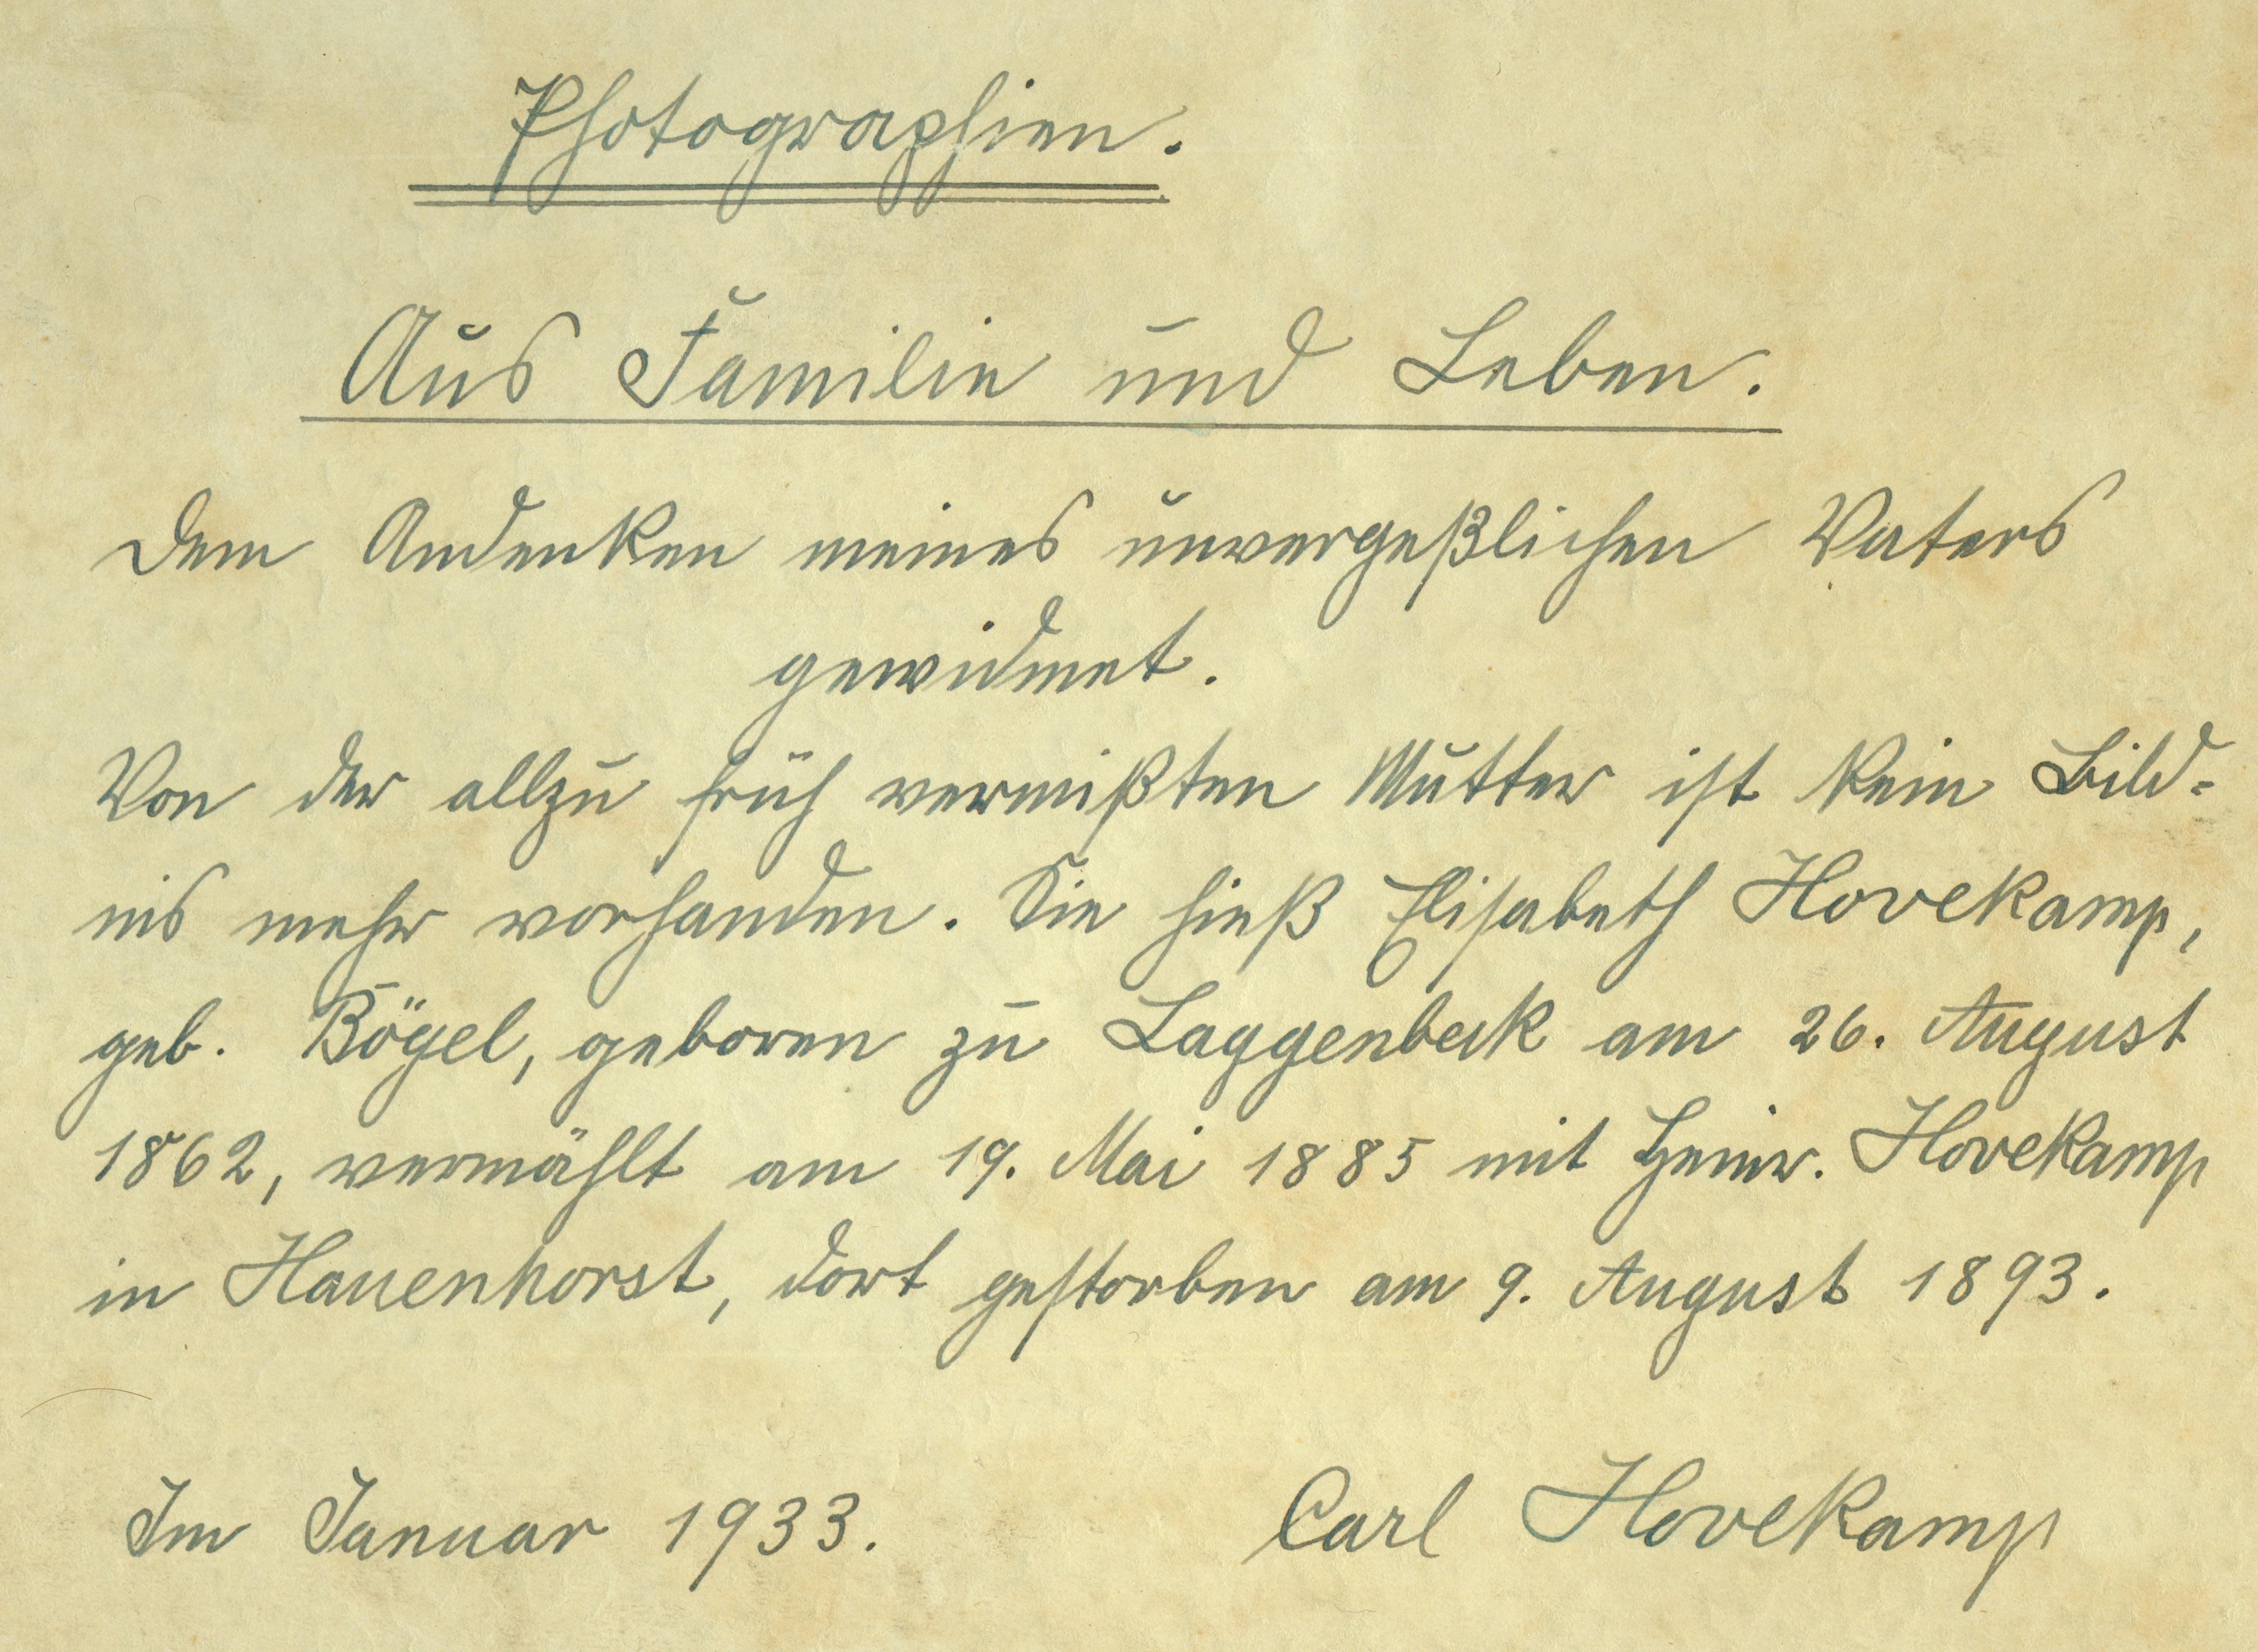 Photographien.
Aus Familie und Leben.
Dem Andenken meines unvergeßlichen Vaters
gewidmet.
Von der allzu früh vermißten Mutter ist kein Bild-
nis mehr vorhanden. Sie hieß Elisabeth Hovekamp,
geb. Bögel, geboren zu Laggenbeck am 26. August
1862, vermählt am 19. Mai 1885 mit Heinr. Hovekamp
in Hauenhorst, dort gestorben am 9. August 1893.
Im Januar 1933.
Carl Hovekamp